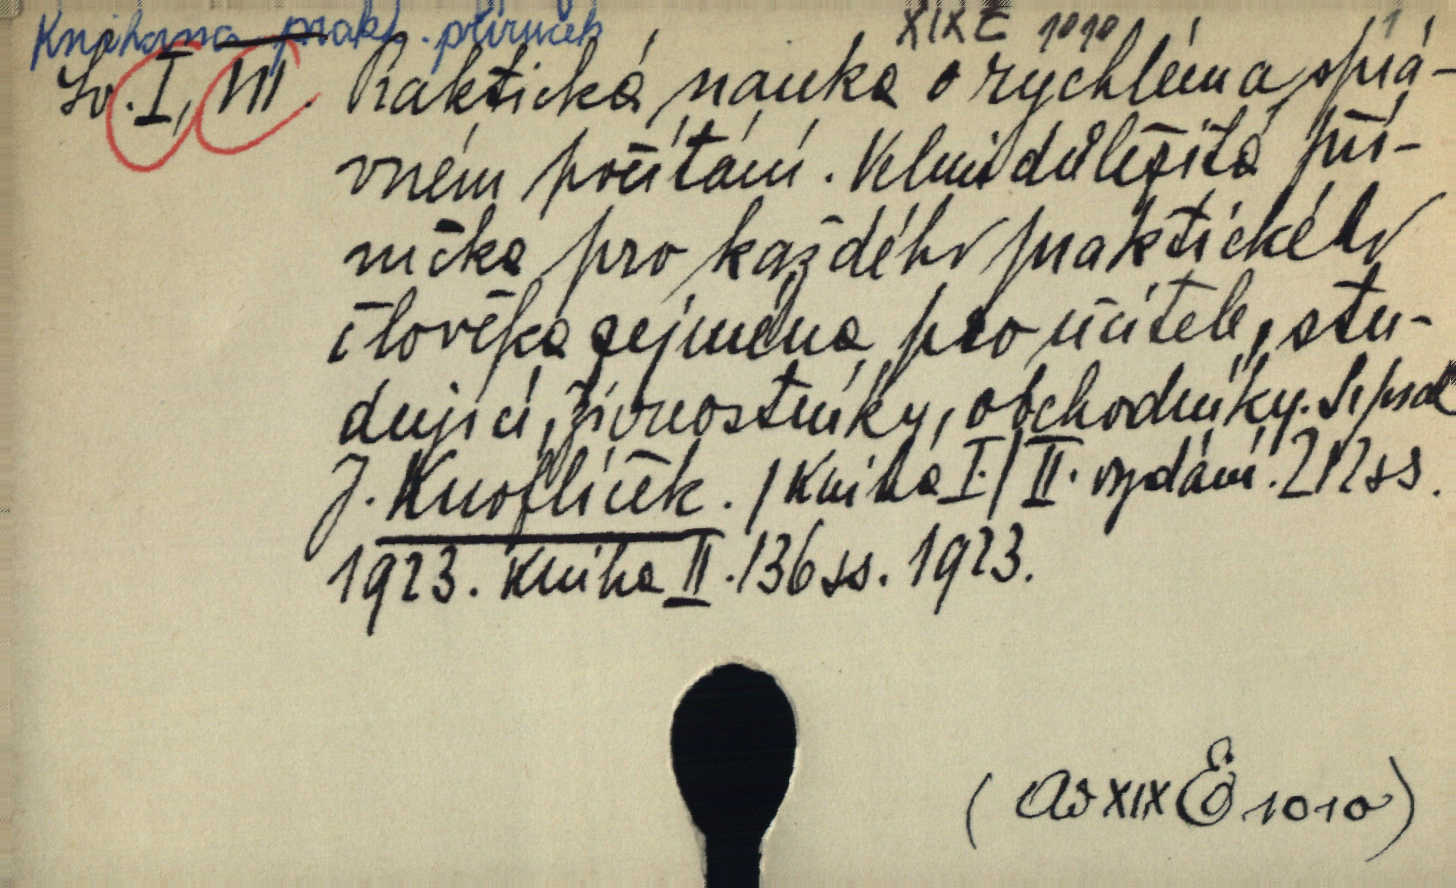 Knihovna prakt. příruček XIX E 1010 1
Sv. I, VII. Praktická nauka o rychlém a sprá-
vném počítání. Velmi důležitá pří-
ručka pro každého praktického
člověka zejména pro učitele, stu-
dující, živnostníky, obchodníky. Sepsal
J. Knoflíček. /Kniha I./ II. vydání. 212 ss.
1923. Kniha II. 136 ss. 1923.
( Ad XIX E 1010 )